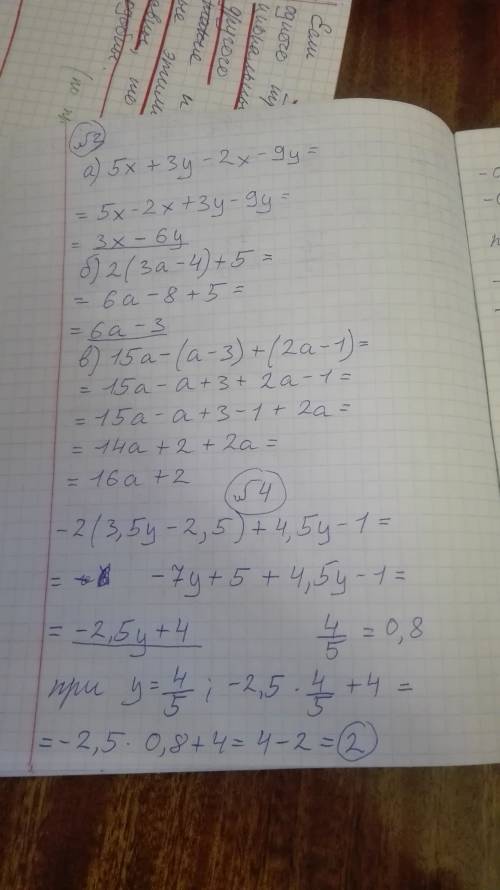 Если
другого
другого
и
этим
то
№2
а) 5x + 3y - 2x - 9y =
= 5x - 2x + 3y - 9y =
= 3x - 6y
б) 2(3a - 4) + 5 =
= 6a - 8 + 5 =
= 6a - 3
в) 15a - (a - 3) + (2a - 1) =
= 15a - a + 3 + 2a - 1 =
= 15a - a + 3 - 1 + 2a =
= 14a + 2 + 2a =
= 16a + 2
№4
-2(3,5y - 2,5) + 4,5y - 1 =
= -7y + 5 + 4,5y - 1 =
= -2,5y + 4 4/5 = 0,8
при y = 4/5 ; -2,5 · 4/5 + 4 =
= -2,5 · 0,8 + 4 = 4 - 2 = 2